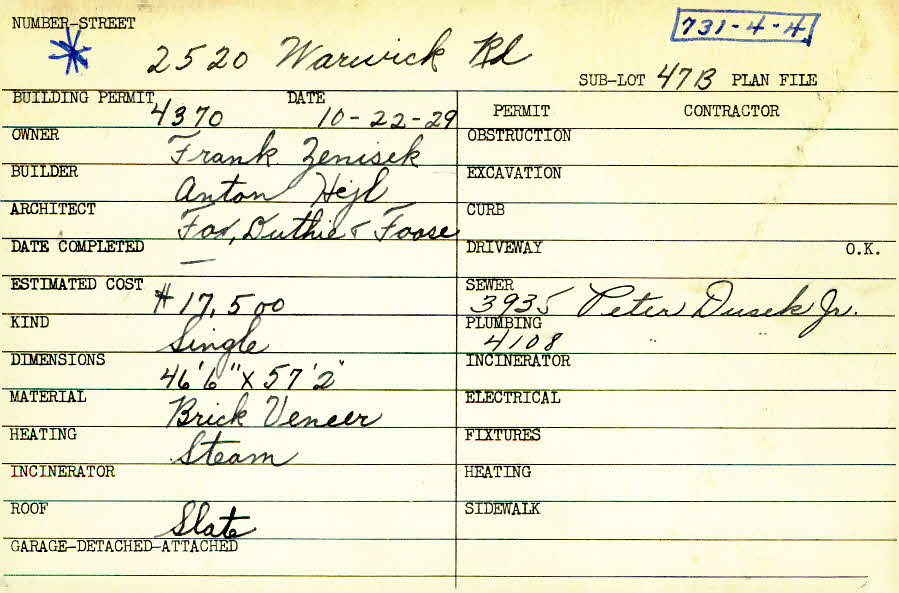 NUMBER-STREET
731-4-4
2520 Warwick Rd
SUB-LOT 47B PLAN FILE
BUILDING PERMIT 4370 DATE 10-22-29
PERMIT CONTRACTOR
OWNER Frank Zenisek
OBSTRUCTION
BUILDER Anton Hejl
EXCAVATION
ARCHITECT Fox, Duthie & Foose
CURB
DATE COMPLETED —
DRIVEWAY O.K.
ESTIMATED COST $17,500
SEWER 3935 Peter Dusek Jr.
KIND Single
PLUMBING 4108
DIMENSIONS 46'6" X 57'2"
INCINERATOR
MATERIAL Brick Veneer
ELECTRICAL
HEATING Steam
FIXTURES
INCINERATOR
HEATING
ROOF Slate
SIDEWALK
GARAGE-DETACHED-ATTACHED